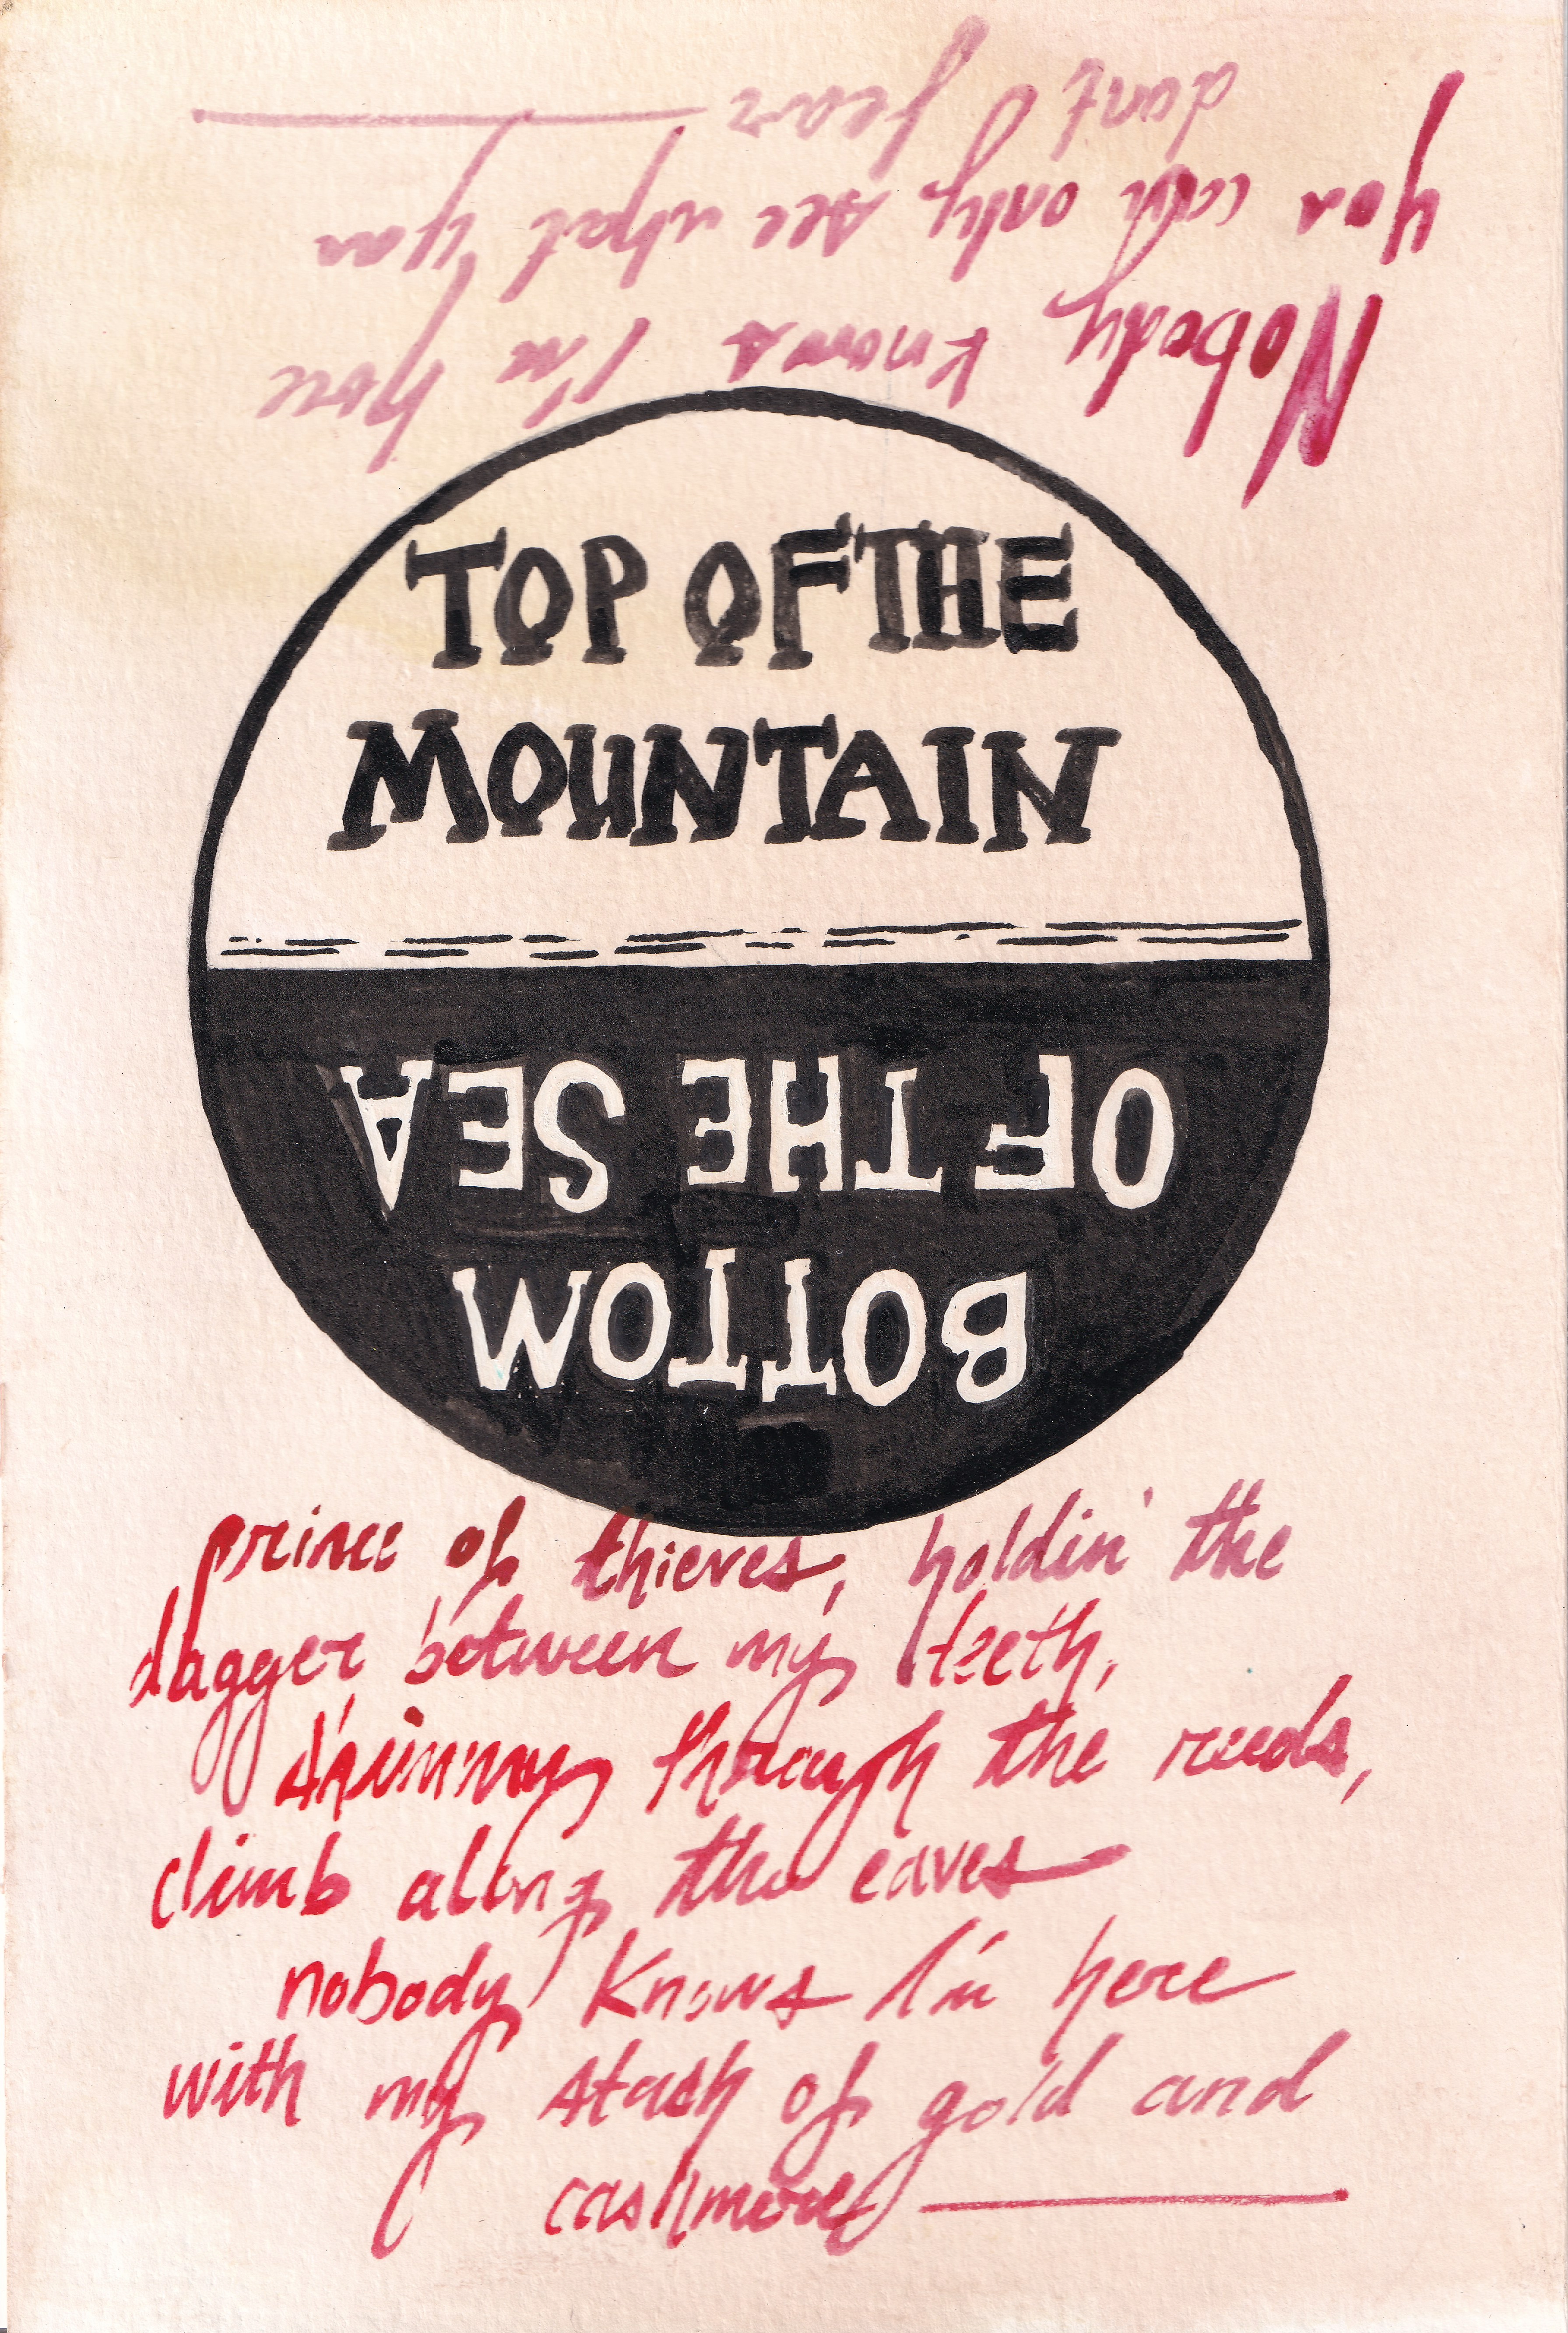 Nobody knows I'm here
you can only see what you
dont fear
TOP OF THE
MOUNTAIN
BOTTOM
OF THE SEA
prince of thieves, holdin' the
dagger between my teeth,
shimmy through the reeds,
climb along the eaves
nobody knows I'm here
with my stash of gold and
cashmere